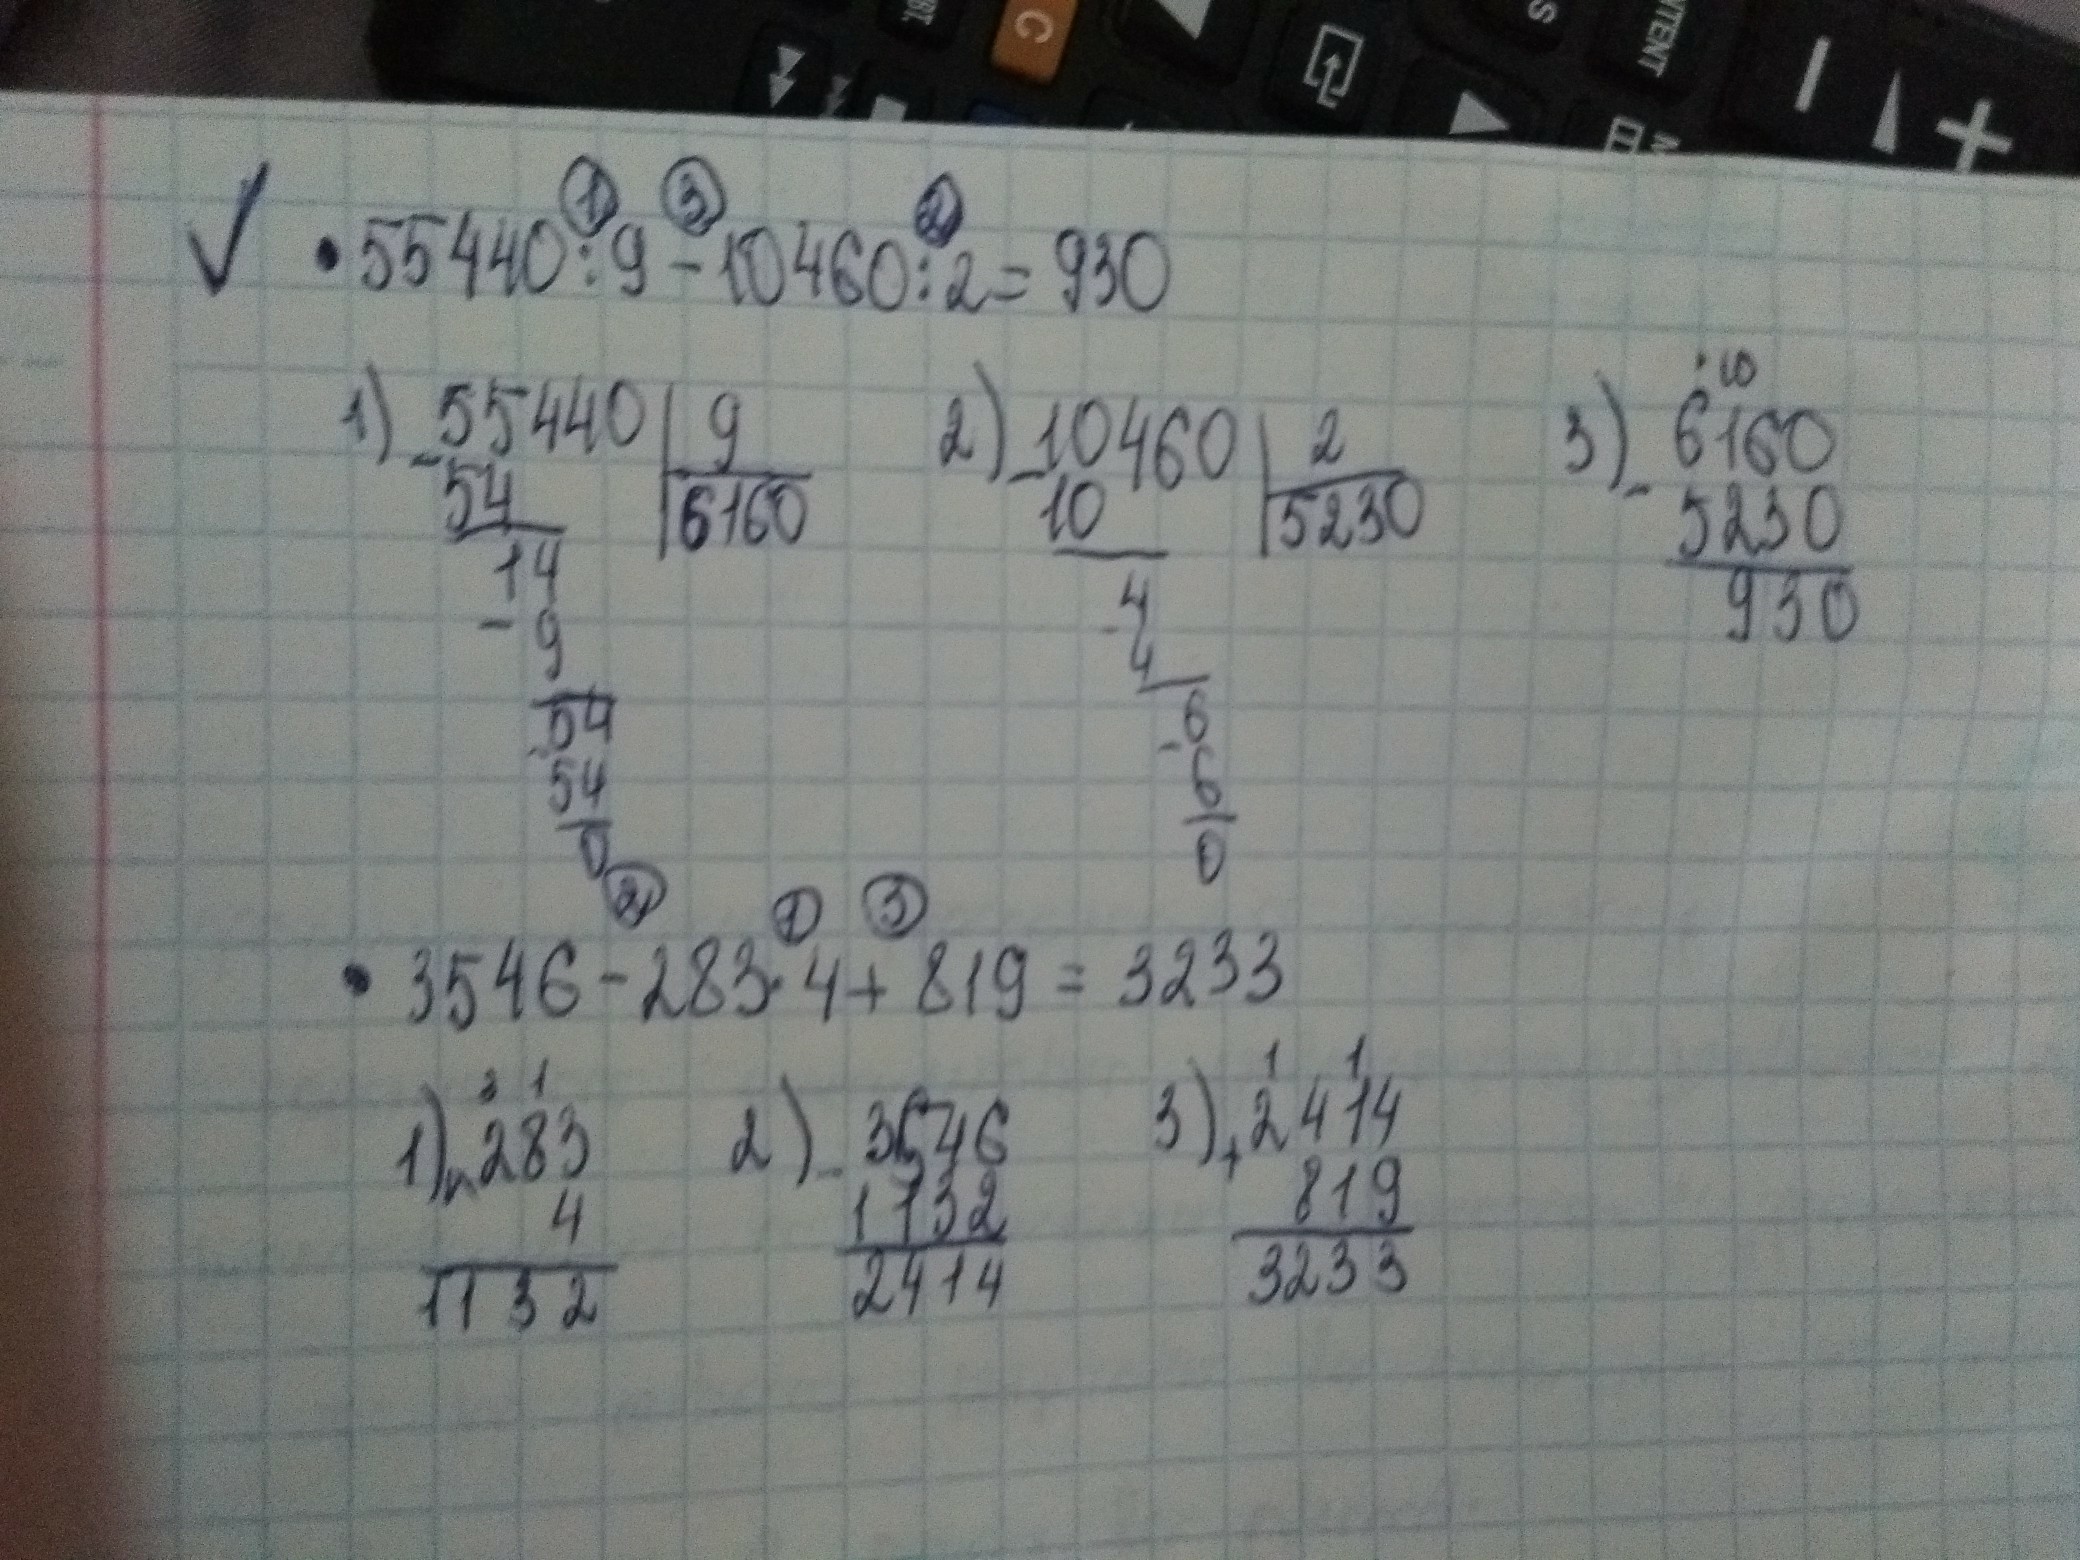 C
S
TENT
55440:9-10460:2=930
1 3 2
1) 55440 | 9  2) 10460 | 2  3) 6160
- 54 | 6160  - 10 | 5230  - 5230
14  4  930
- 9  - 4
54  6
- 54  - 6
0  0
2 1 3
3546-283·4+819=3233
3 1  1 1
1) 283  2) 3546  3) 2414
4  - 1132  + 819
1132  2414  3233